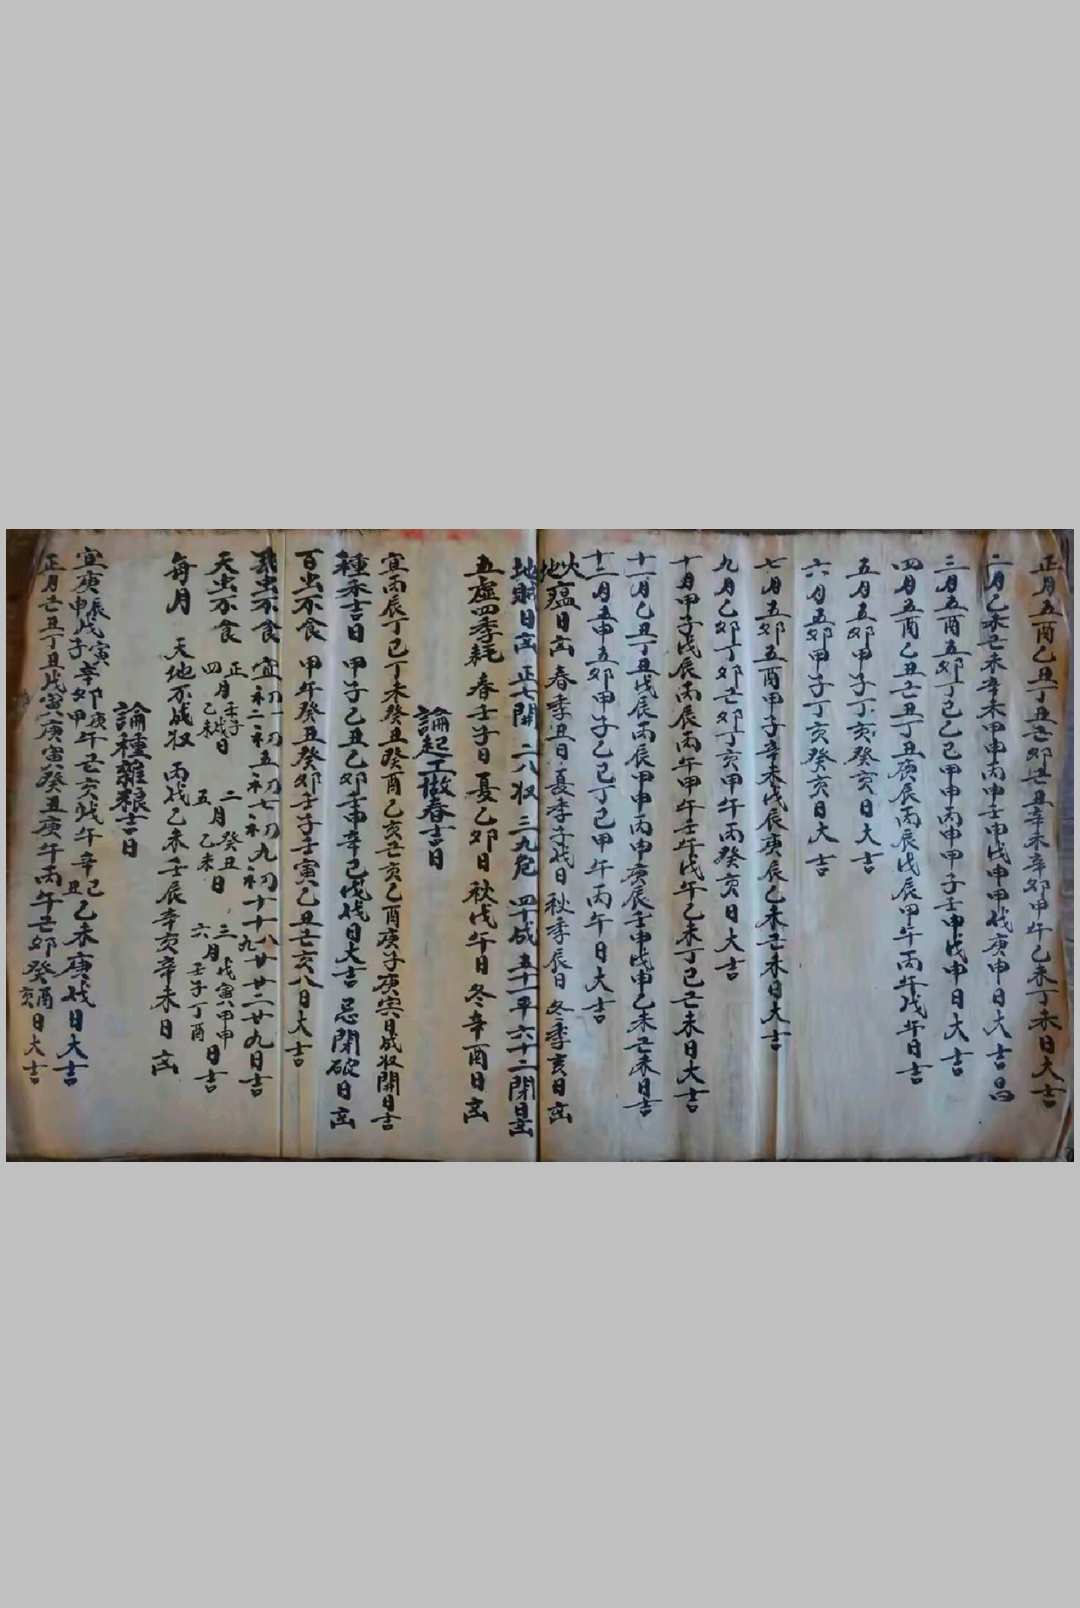 正月五酉乙丑丁丑己卯己丑辛未辛卯甲午乙未丁未日大吉
二月乙未己未辛未甲申丙申壬申戊申甲戌庚申日大吉昌
三月五酉五卯丁巳己巳甲申丙申甲子壬申戊申日大吉
四月五酉乙丑己丑丁丑庚辰丙辰戊辰甲午丙午戊午日吉
五月五卯甲子丁亥癸亥日大吉
六月五卯甲子丁亥癸亥日大吉
七月五卯五酉甲子辛未戊辰庚辰乙未己未日大吉
九月乙卯丁卯己卯丁亥甲午丙癸亥日大吉
十月甲子戊辰丙辰丙午甲午壬午戊午乙未丁巳己未日大吉
十一月乙丑丁丑戊辰丙辰甲申丙申庚辰壬申戊申乙未己未日吉
十二月五申五卯甲子乙巳丁巳甲午丙午日大吉
火地瘟日凶 春季丑日 夏季子戌日 秋季辰日 冬季亥日凶
地賊日凶 正七開 二八收 三九危 四十成 五十一平 六十二閉日凶
五虛四季耗 春壬子日 夏乙卯日 秋戊午日 冬辛酉日凶
論起工做春吉日
宜丙辰丁巳丁未癸丑癸酉乙亥己亥乙酉庚子庚寅日成收開日吉
種禾吉日 甲子乙丑乙卯壬申辛巳戊戌日大吉 忌閉破日凶
百虫不食 甲午癸丑癸卯壬子壬寅乙丑己亥八日大吉
虫不食 宜初一初二初五初七初九初十十八十九廿二廿九日吉
天虫不食 正月壬子 四月乙戌日 二月癸丑 五月乙未日 三月戊寅甲申 六月壬子丁酉日吉
每月 天地不成收 丙戌乙未壬辰辛亥辛未日凶
論種雜粮吉日
宜庚辰庚申戊寅戊子辛卯庚午甲己亥戊午辛巳辛丑乙未庚戌日大吉
正月己丑丁丑戊寅庚寅癸丑庚午丙午己卯癸酉癸亥日大吉